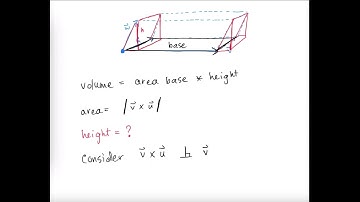 h
base
volume = area base * height
area = |v⃗ × u⃗|
height = ?
Consider v⃗ × u⃗ ⊥ v⃗